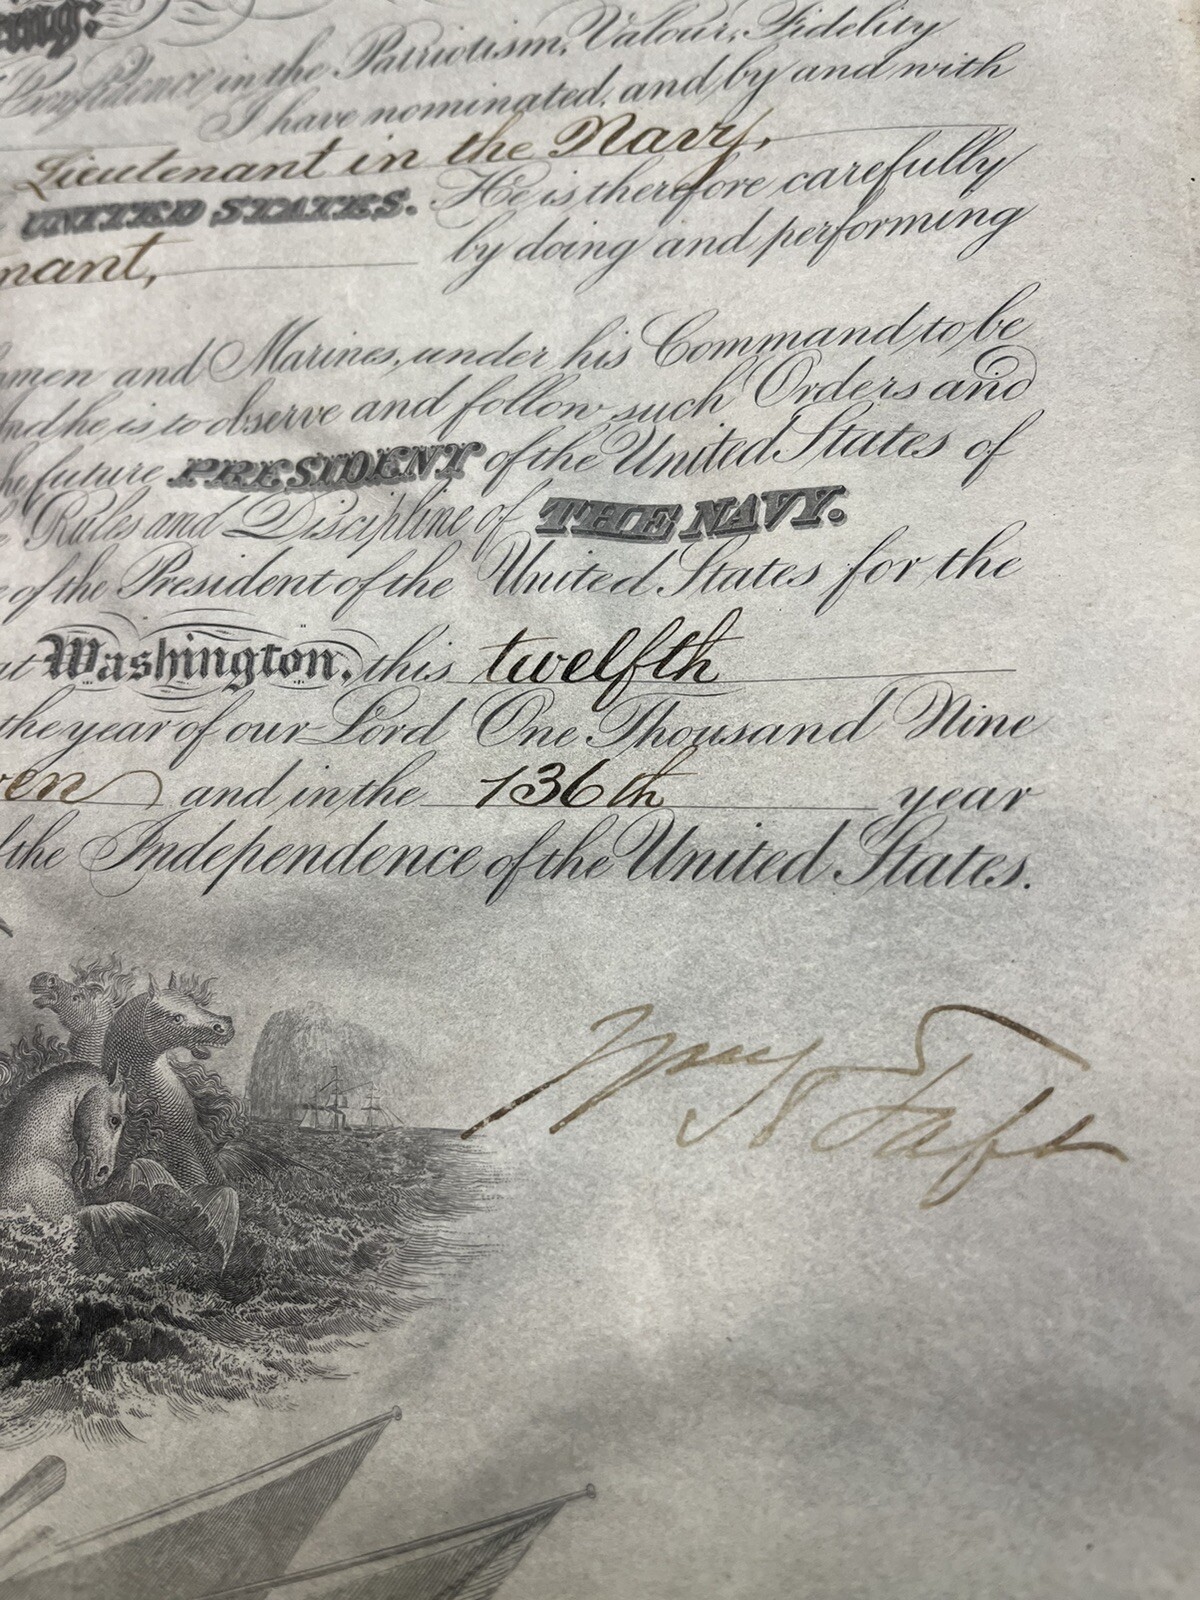 Confidence in the Patriotism, Valour, Fidelity
I have nominated, and by and with
Lieutenant in the Navy,
UNITED STATES. He is therefore carefully
nant, by doing and performing
men and Marines, under his Command to be
And he is to observe and follow such Orders and
future PRESIDENT of the United States of
Rules and Discipline of THE NAVY.
of the President of the United States for the
at Washington, this twelfth
the year of our Lord One Thousand Nine
en and in the 136th year
the Independence of the United States.
Wm H Taft